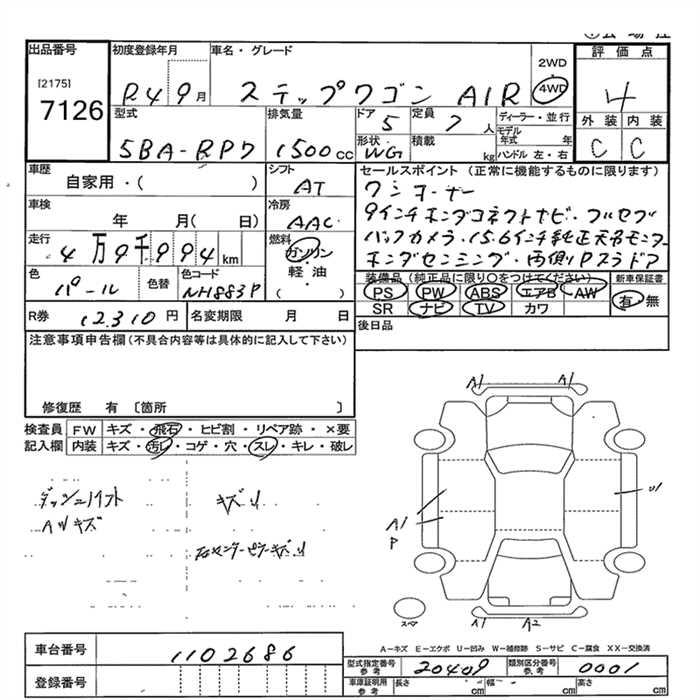 出品番号
[2175]
7126
初度登録年月
R4 9月
車名・グレード
ステップワゴン AIR
2WD
4WD
評価点
4
外装 内装
C C
型式
5BA-RP7
排気量
1500cc
ドア
5
定員
7人
ディーラー・並行
モデル年式 年
ハンドル 左・右
形状
WG
積載
kg
車歴
自家用・( )
シフト
AT
車検
年 月( 日)
冷房
AAC
走行
4万9千994km
燃料
ガソリン
軽油・
( )
色
パール
色替
色コード
NH883P
R券
12,310円
名変期限 月 日
セールスポイント(正常に機能するものに限ります)
ワンオーナー
9インチホンダコネクトナビ・フルセグ
バックカメラ・15.6インチ純正天吊モニター
ホンダセンシング・両側Pスラドア
装備品(純正品に限り○をつけてください)
PS PW ABS エアB AW
SR ナビ TV カワ
新車保証書
有・無
後日品
注意事項申告欄(不具合内容等は具体的に記入して下さい)
修復歴 有〔箇所 〕
検査員記入欄
FW キズ・飛石・ヒビ割・リペア跡・×要
内装 キズ・汚レ・コゲ・穴・スレ・キレ・破レ
キズ
A1 A1
A1
P
U1
A1 A2
スペア
A-キズ E-エクボ U-凹み W-補修跡 S-サビ C-腐食 XX-交換済
車台番号
1102686
登録番号
型式指定番号
参考
20409
類別区分番号
参考
0001
車庫証明用
参考
長さ cm 幅 cm 高さ cm